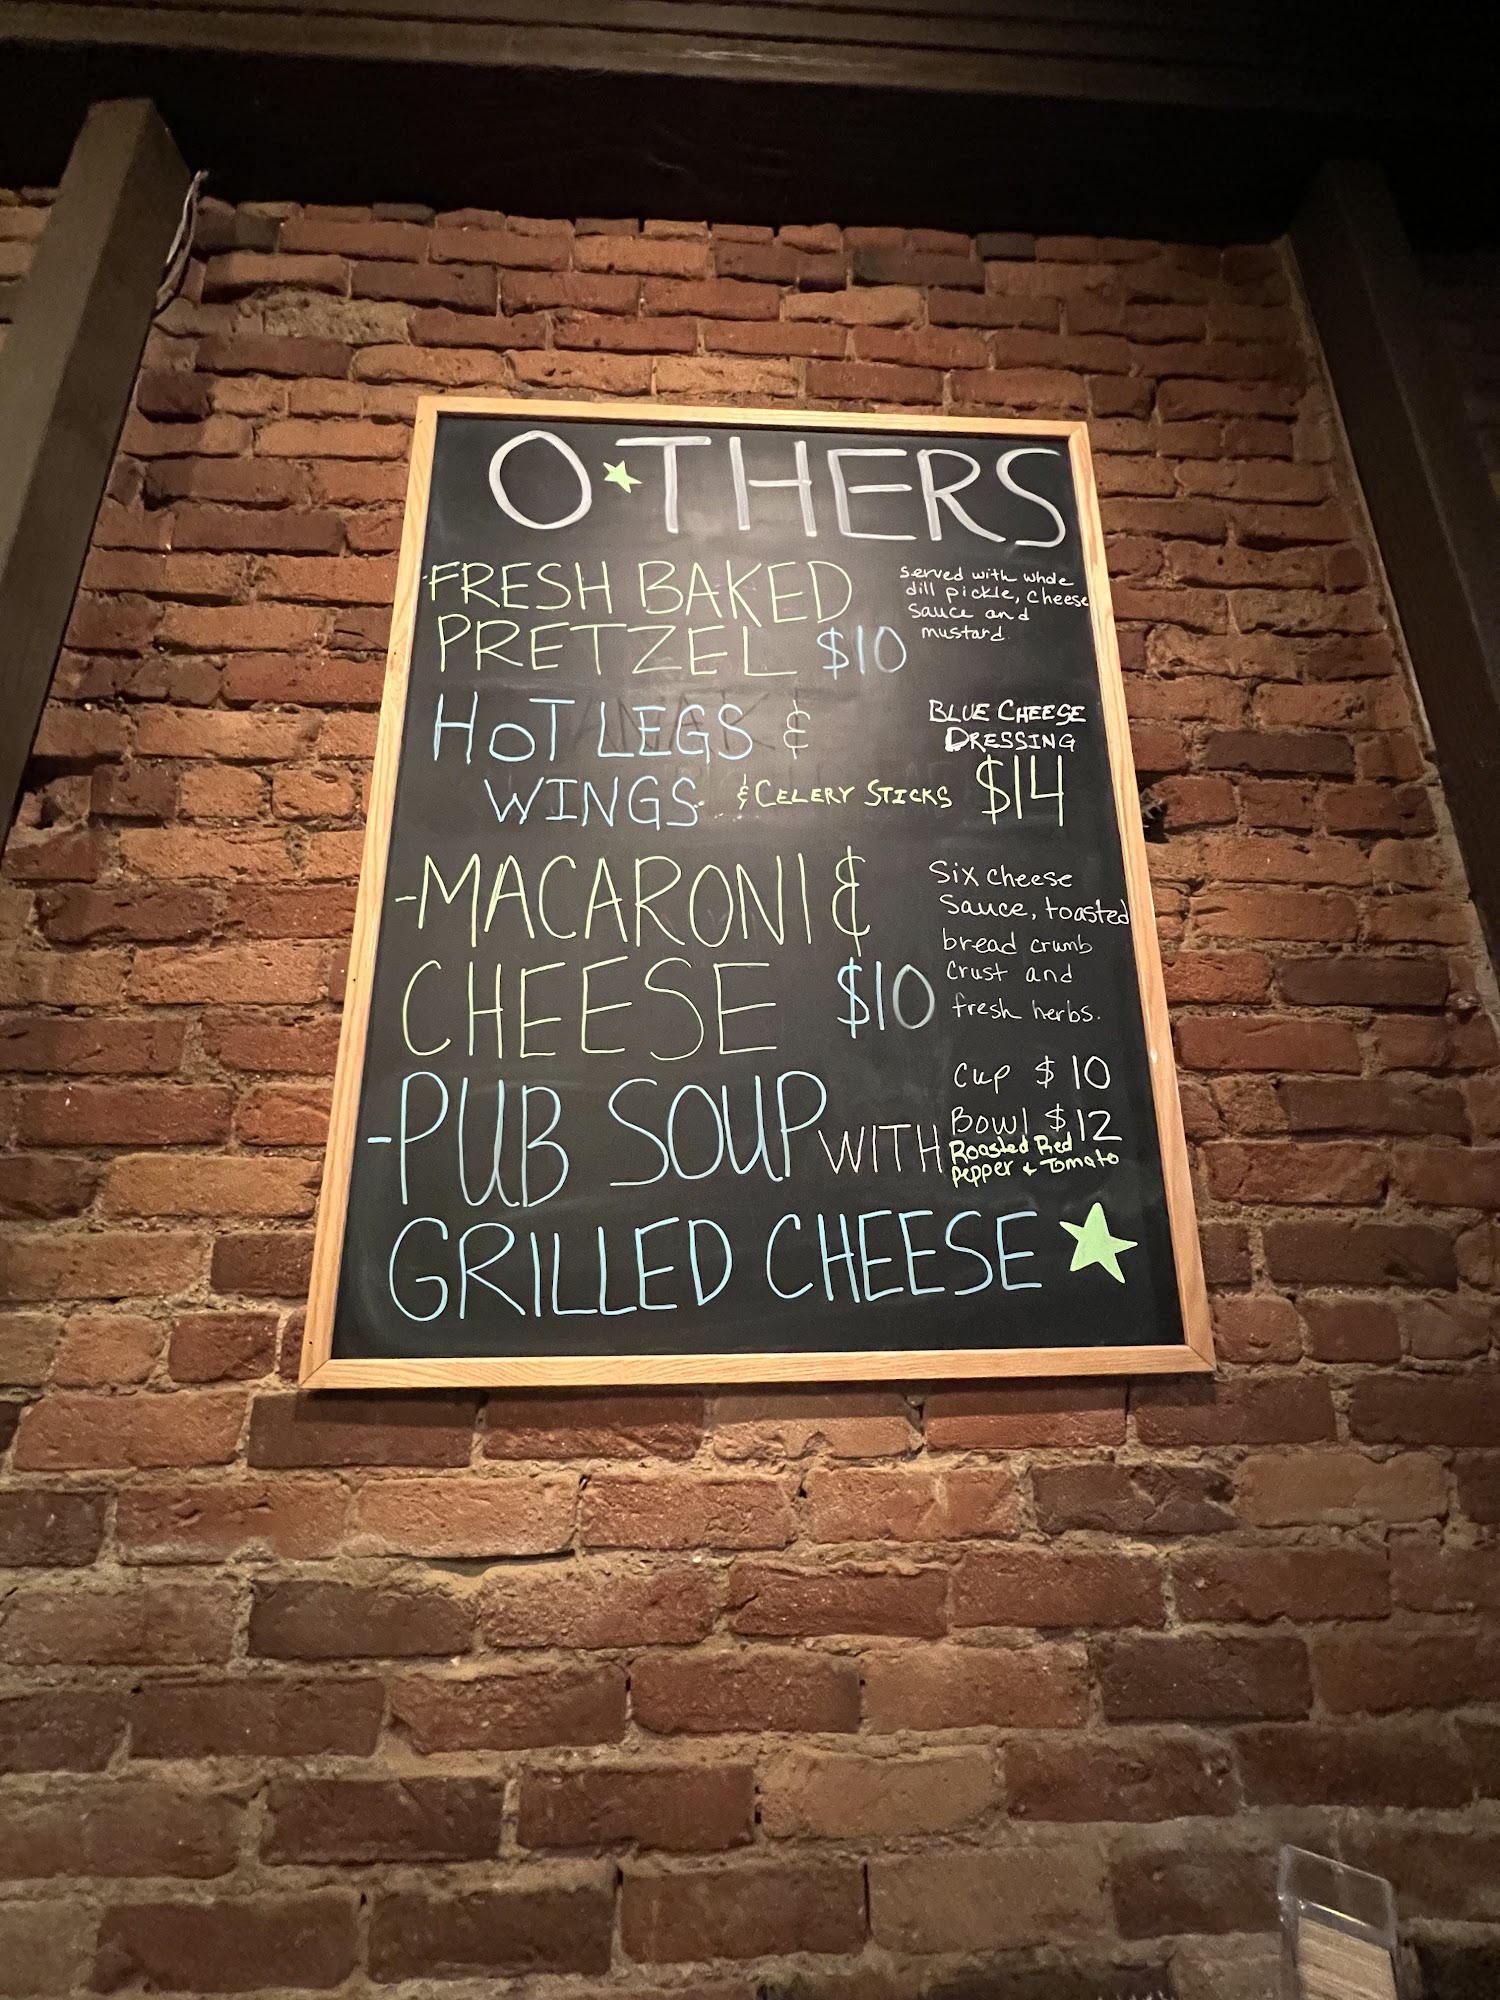 O★THERS
-FRESH BAKED
PRETZEL $10
served with whole
dill pickle, cheese
sauce and
mustard.
HOT LEGS &
WINGS
& CELERY STICKS
BLUE CHEESE
DRESSING
$14
-MACARONI &
CHEESE $10
Six cheese
sauce, toasted
bread crumb
crust and
fresh herbs.
-PUB SOUP WITH
GRILLED CHEESE ★
Cup $10
Bowl $12
Roasted Red
Pepper + Tomato